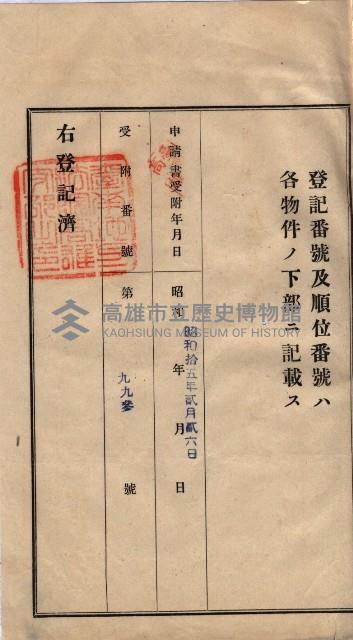 登記番號及順位番號ハ
各物件ノ下部ニ記載ス
申請書受附年月日
昭和 年 月 日
昭和拾五年貳月貳六日
受附番號
第 九九參 號
右登記濟
高雄市立歷史博物館
KAOHSIUNG MUSEUM OF HISTORY